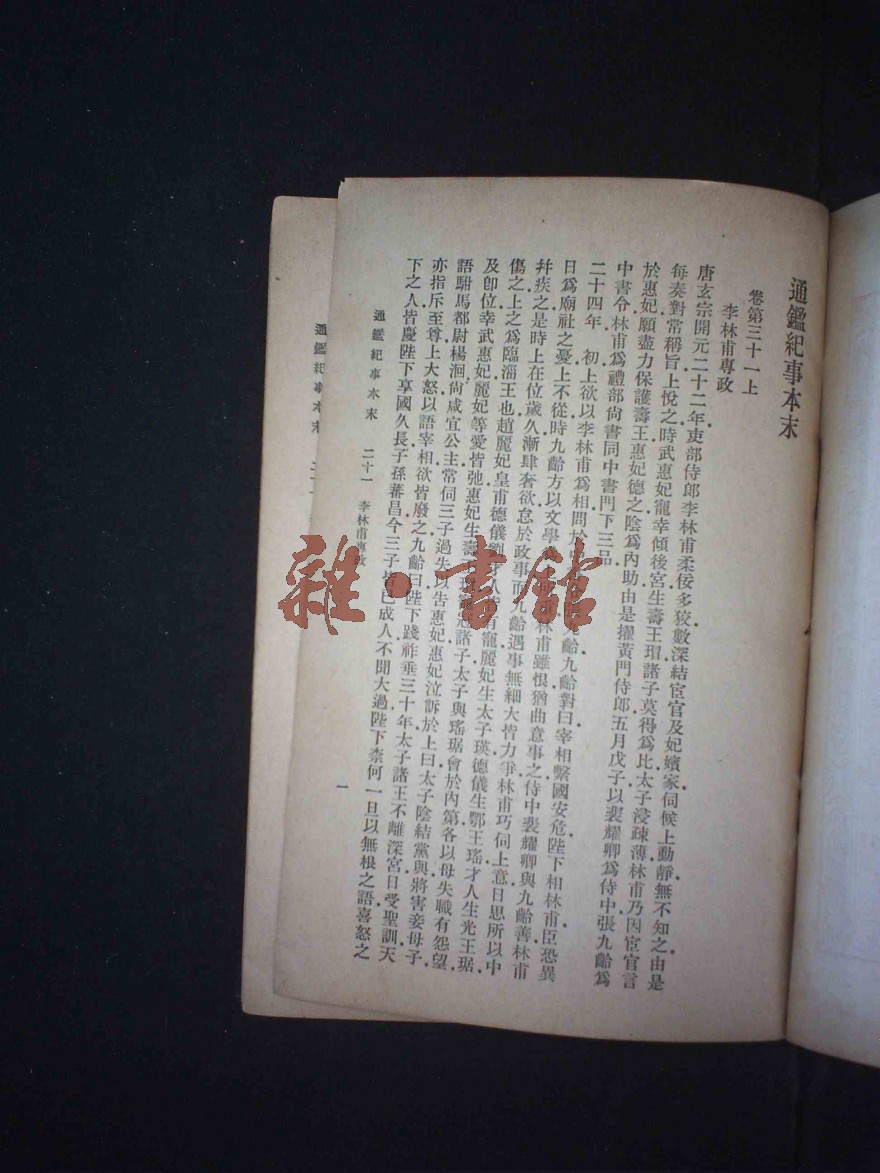 通鑑紀事本末
卷第三十一上
李林甫專政
唐玄宗開元二十二年吏部侍郎李林甫柔佞多狡數深結宦官及妃嬪家伺候上動靜無不知之由是
每奏對常稱旨上悅之時武惠妃寵幸傾後宮生壽王瑁諸子莫得爲比太子浸疏薄林甫乃因宦官言
於惠妃願盡力保護壽王惠妃德之陰爲內助由是擢黃門侍郎五月戊子以裴耀卿爲侍中張九齡爲
中書令林甫爲禮部尚書同中書門下三品
二十四年 初上欲以李林甫爲相問於中九齡九齡對曰宰相繫國安危陛下相林甫臣恐異
日爲廟社之憂上不從時九齡方以文學林甫雖恨猶曲意事之侍中裴耀卿與九齡善林甫
幷疾之是時上在位歲久漸肆奢欲怠於政事而九齡遇事無細大皆力爭林甫巧伺上意日思所以中
傷之上之爲臨淄王也趙麗妃皇甫德儀劉才人皆有寵麗妃生太子瑛德儀生鄂王瑤才人生光王琚
及卽位幸武惠妃麗妃等愛皆弛惠妃生壽諸子太子與瑤琚會於內第各以母失職有怨望
語駙馬都尉楊洄尚咸宜公主常伺三子過失以告惠妃惠妃泣訴於上曰太子陰結黨與將害妾母子
亦指斥至尊上大怒以語宰相欲皆廢之九齡曰陛下踐祚垂三十年太子諸王不離深宮日受聖訓天
下之人皆慶陛下享國久長子孫蕃昌今三子皆已成人不聞大過陛下柰何一旦以無根之語喜怒之
通鑑紀事本末 二十一 李林甫專政
一
通鑑紀事本末
雜·書館